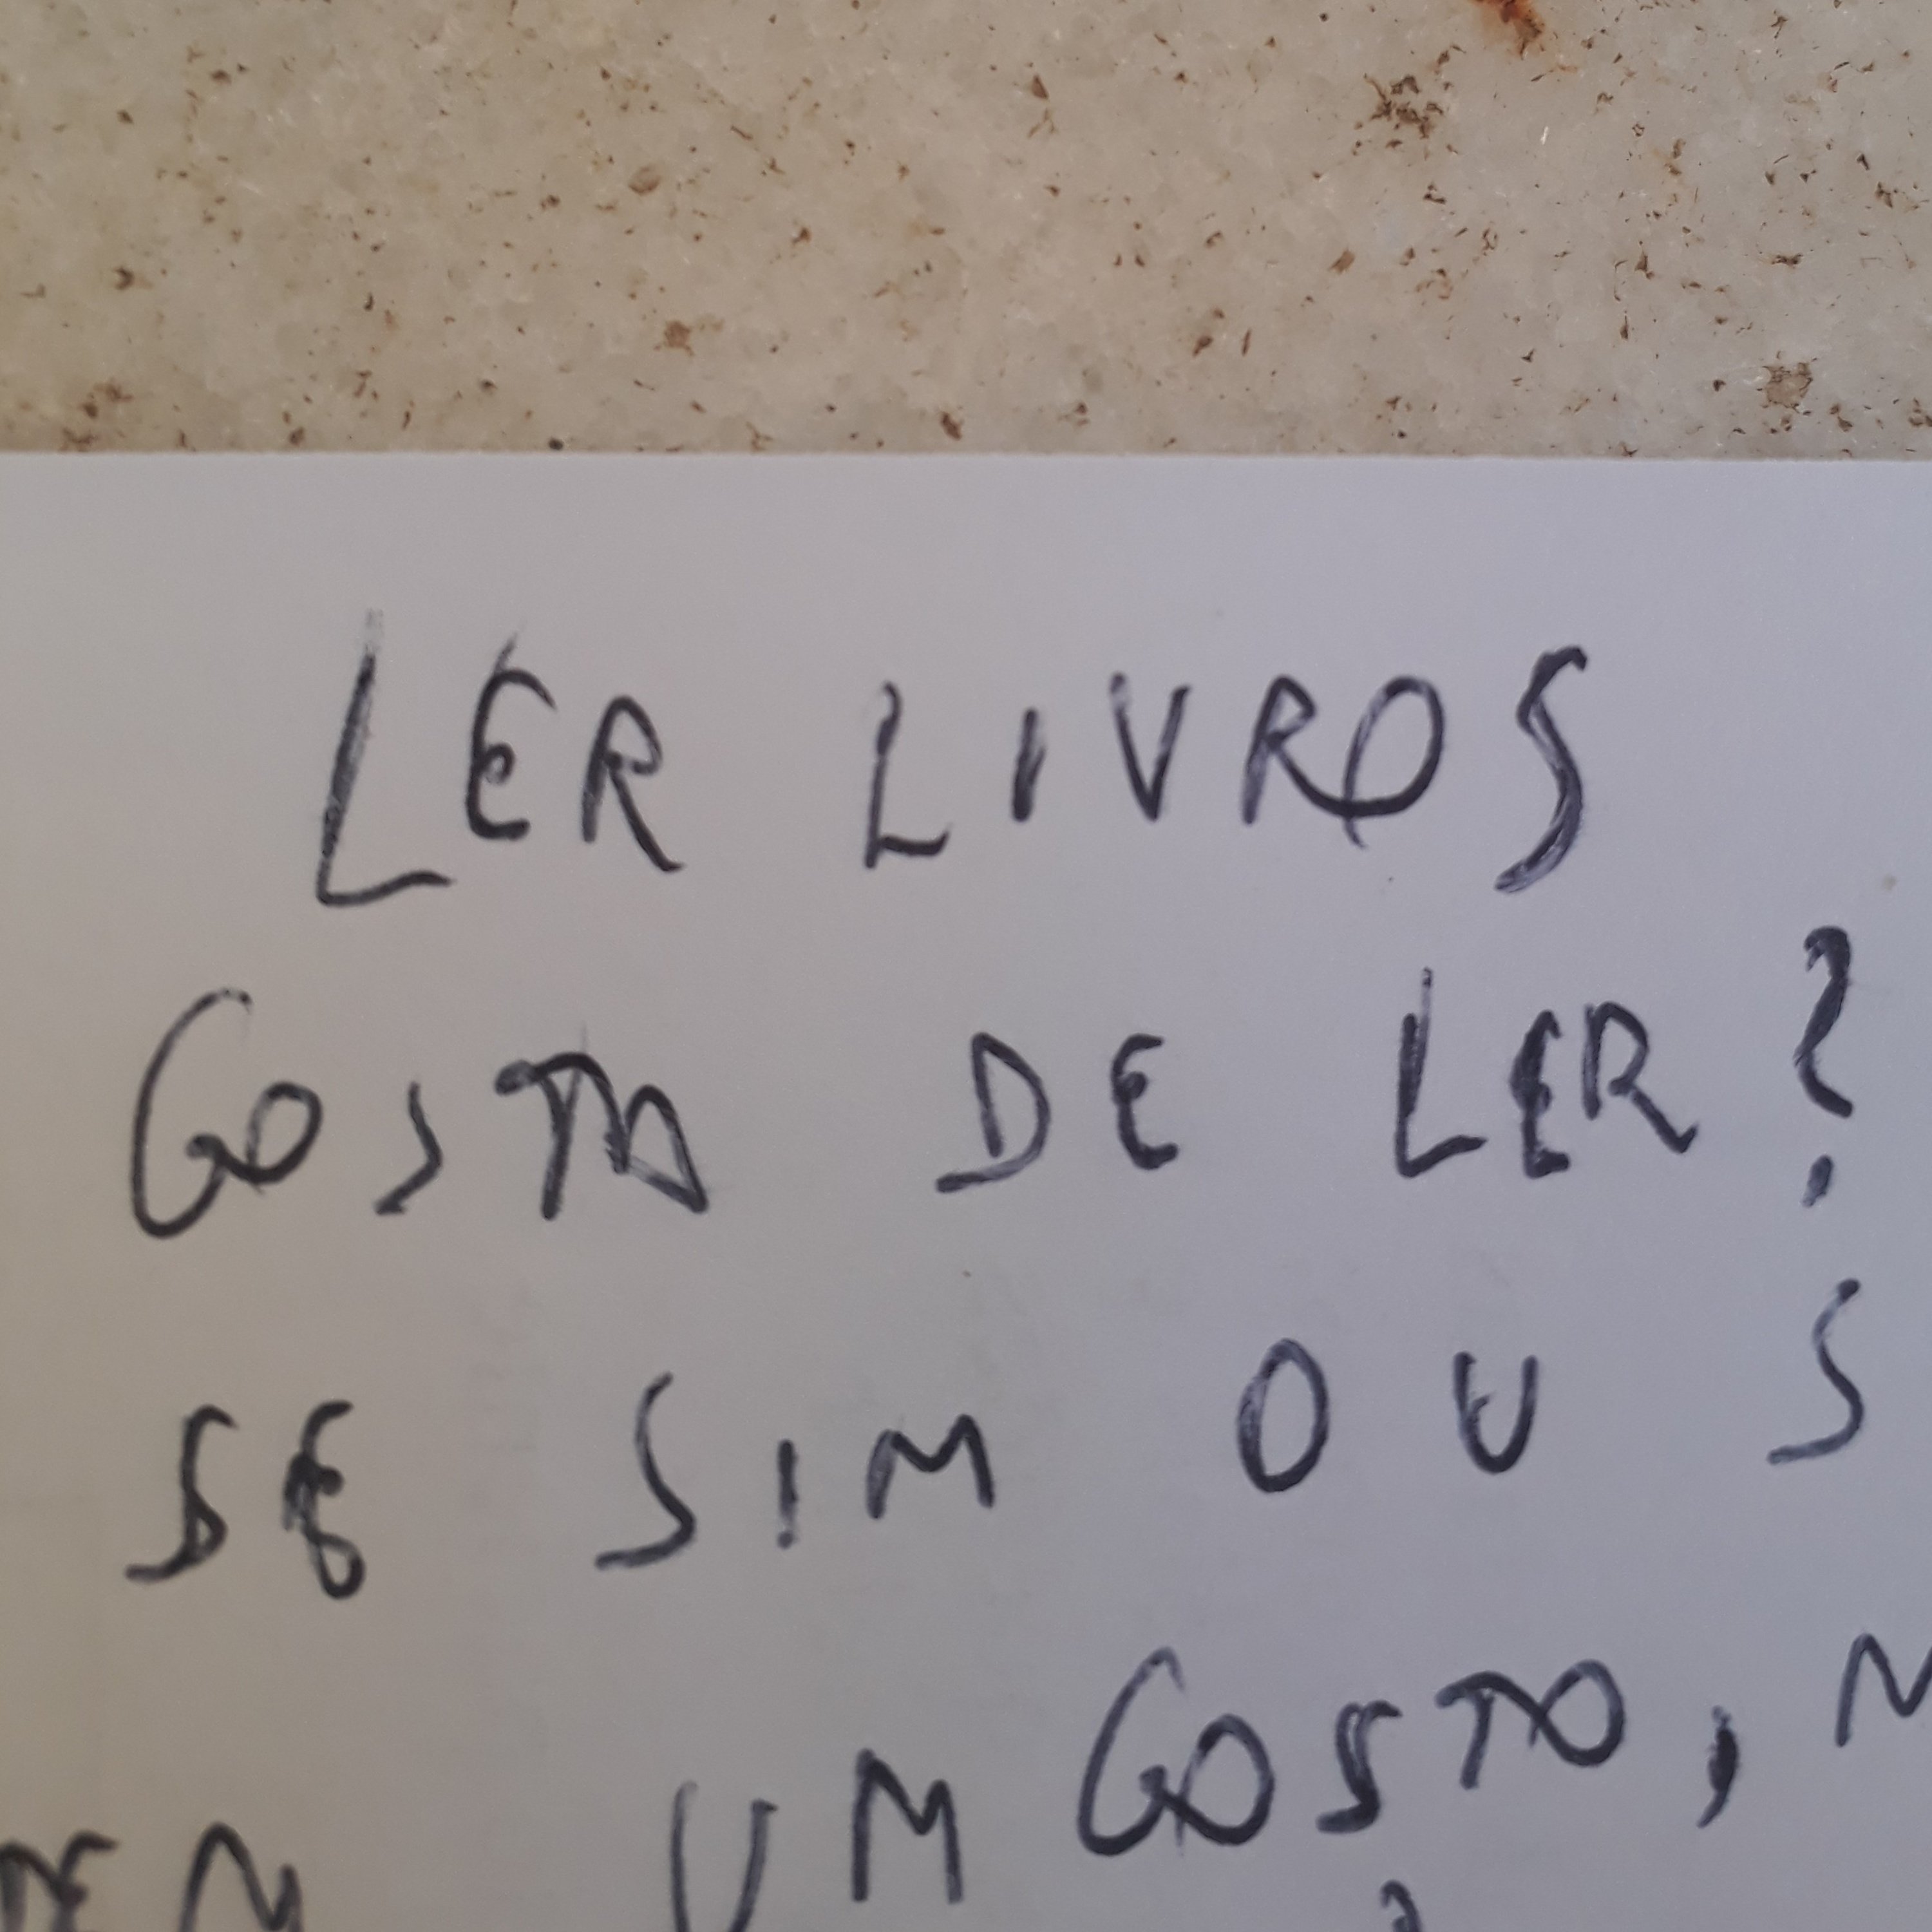 LER LIVROS
GOSTA DE LER?
SE SIM OU S
UM GOSTO, N